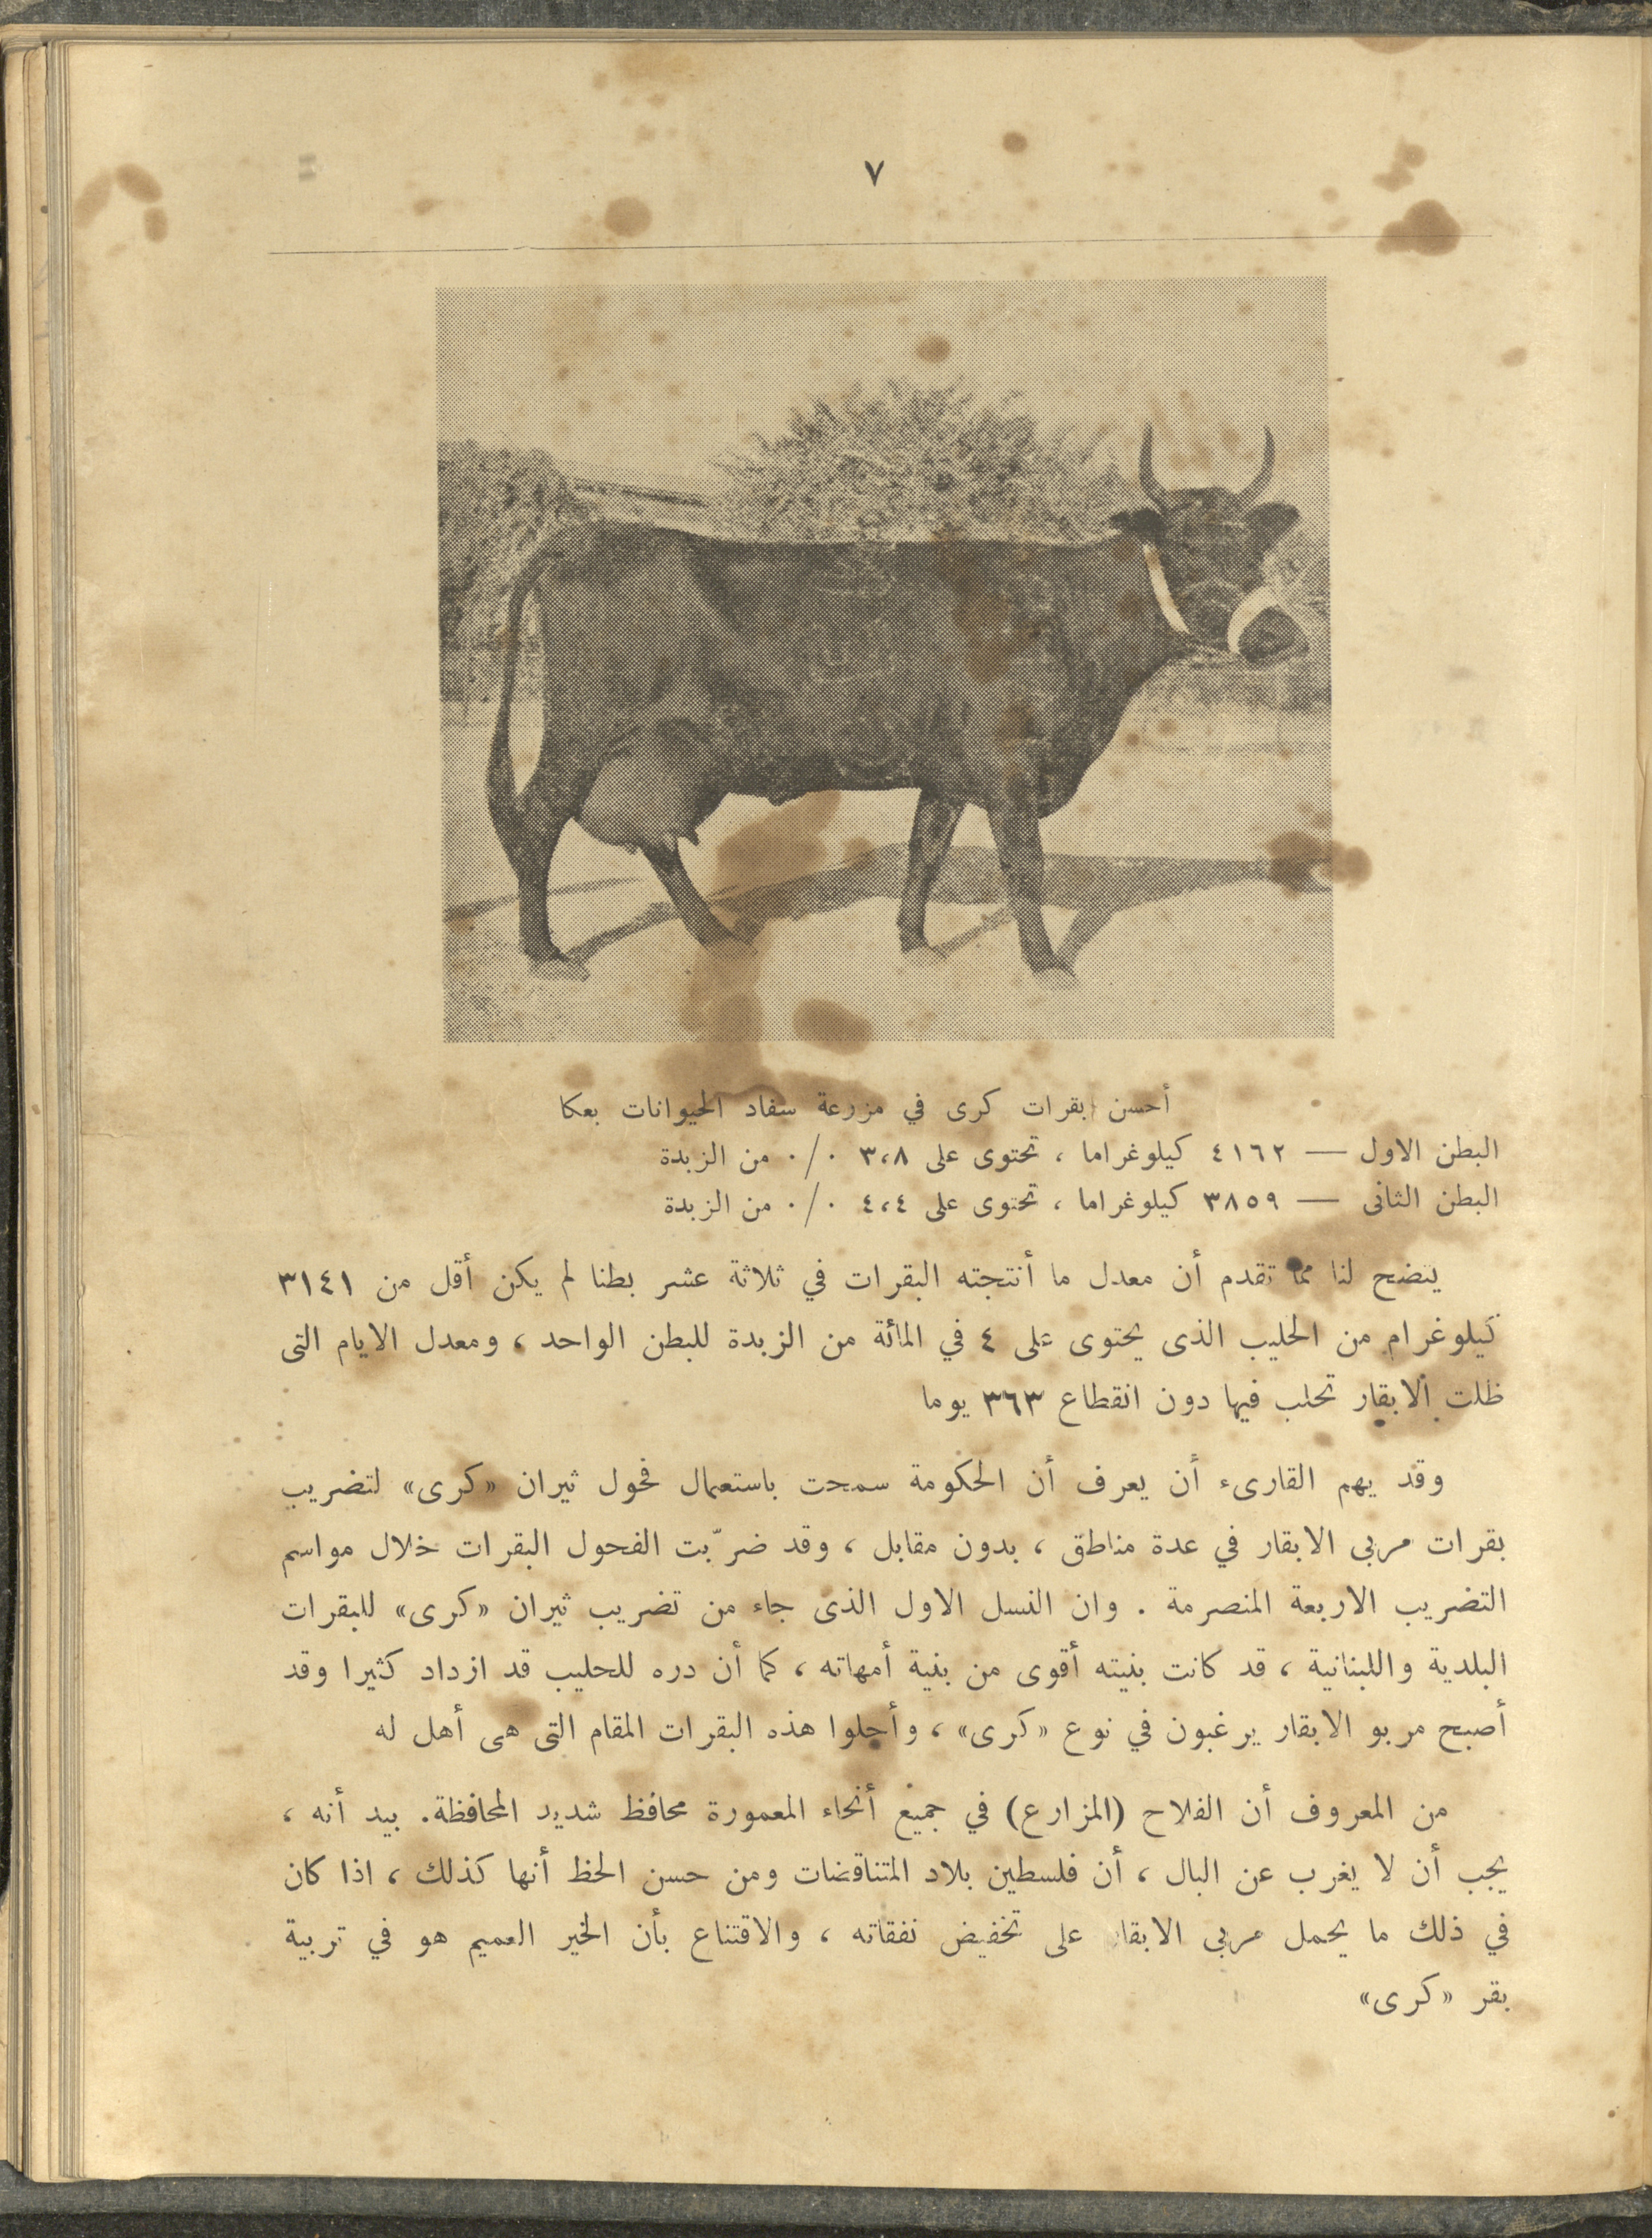 ٧
أحسن بقرات كرى في مزرعة سفاد الحيوانات بعكا
البطن الاول — ٤١٦٢ كيلوغراما ، تحتوى على ٣،٨ ٠/٠ من الزبدة
البطن الثانى — ٣٨٥٩ كيلوغراما ، تحتوى على ٤،٤ ٠/٠ من الزبدة
يتضح لنا مما تقدم أن معدل ما أنتجته البقرات في ثلاثة عشر بطنا لم يكن أقل من ٣١٤١
كيلوغرام من الحليب الذى يحتوى على ٤ في المائة من الزبدة للبطن الواحد ، ومعدل الايام التى
ظلت الابقار تحلب فيها دون انقطاع ٣٦٣ يوما
وقد يهم القارىء أن يعرف أن الحكومة سمحت باستعمال فحول ثيران «كرى» لتضريب
بقرات مربى الابقار في عدة مناطق ، بدون مقابل ، وقد ضرّبت الفحول البقرات خلال مواسم
التضريب الاربعة المنصرمة . وان النسل الاول الذى جاء من تضريب ثيران «كرى» للبقرات
البلدية واللبنانية ، قد كانت بنيته أقوى من بنية أمهاته ، كما أن دره للحليب قد ازداد كثيرا وقد
أصبح مربو الابقار يرغبون في نوع «كرى» ، وأحلوا هذه البقرات المقام التى هى أهل له
من المعروف أن الفلاح (المزارع) في جميع أنحاء المعمورة محافظ شديد المحافظة. بيد أنه ،
يجب أن لا يغرب عن البال ، أن فلسطين بلاد المتناقضات ومن حسن الحظ أنها كذلك ، اذا كان
في ذلك ما يحمل مربى الابقار على تخفيض نفقاته ، والاقتناع بأن الخير العميم هو في تربية
بقر «كرى»